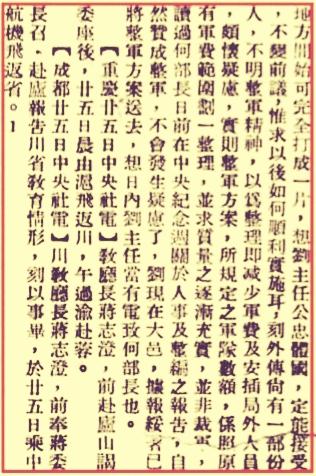 地方開始可完全打成一片，想劉主任公忠體國，定能接受
，不變前議，惟求以後如何順利實施耳，刻外傳尙有一部份
人，不明整軍精神，以爲整理即减少軍費及安插局外人員
，頗懷疑慮，實則整軍方案，所規定之軍隊數額，係照原
有軍費範圍劃一整理，並求質量之逐漸充實，並非裁軍，
讀過何部長日前在中央紀念週關於人事及整編之報告，自
然贊成整軍，不會發生疑慮了，劉現在大邑，據報綏署已
將整軍方案送去，想日內劉主任當有電致何部長也。
【重慶廿五日中央社電】敎廳長蔣志澄，前赴廬山謁
委座後，廿五日晨由滬飛返川，午過渝赴蓉。
【成都廿五日中央社電】川敎廳長蔣志澄，前奉蔣委
長召，赴廬報告川省敎育情形，刻以事畢，於廿五日乘中
航機飛返省。1